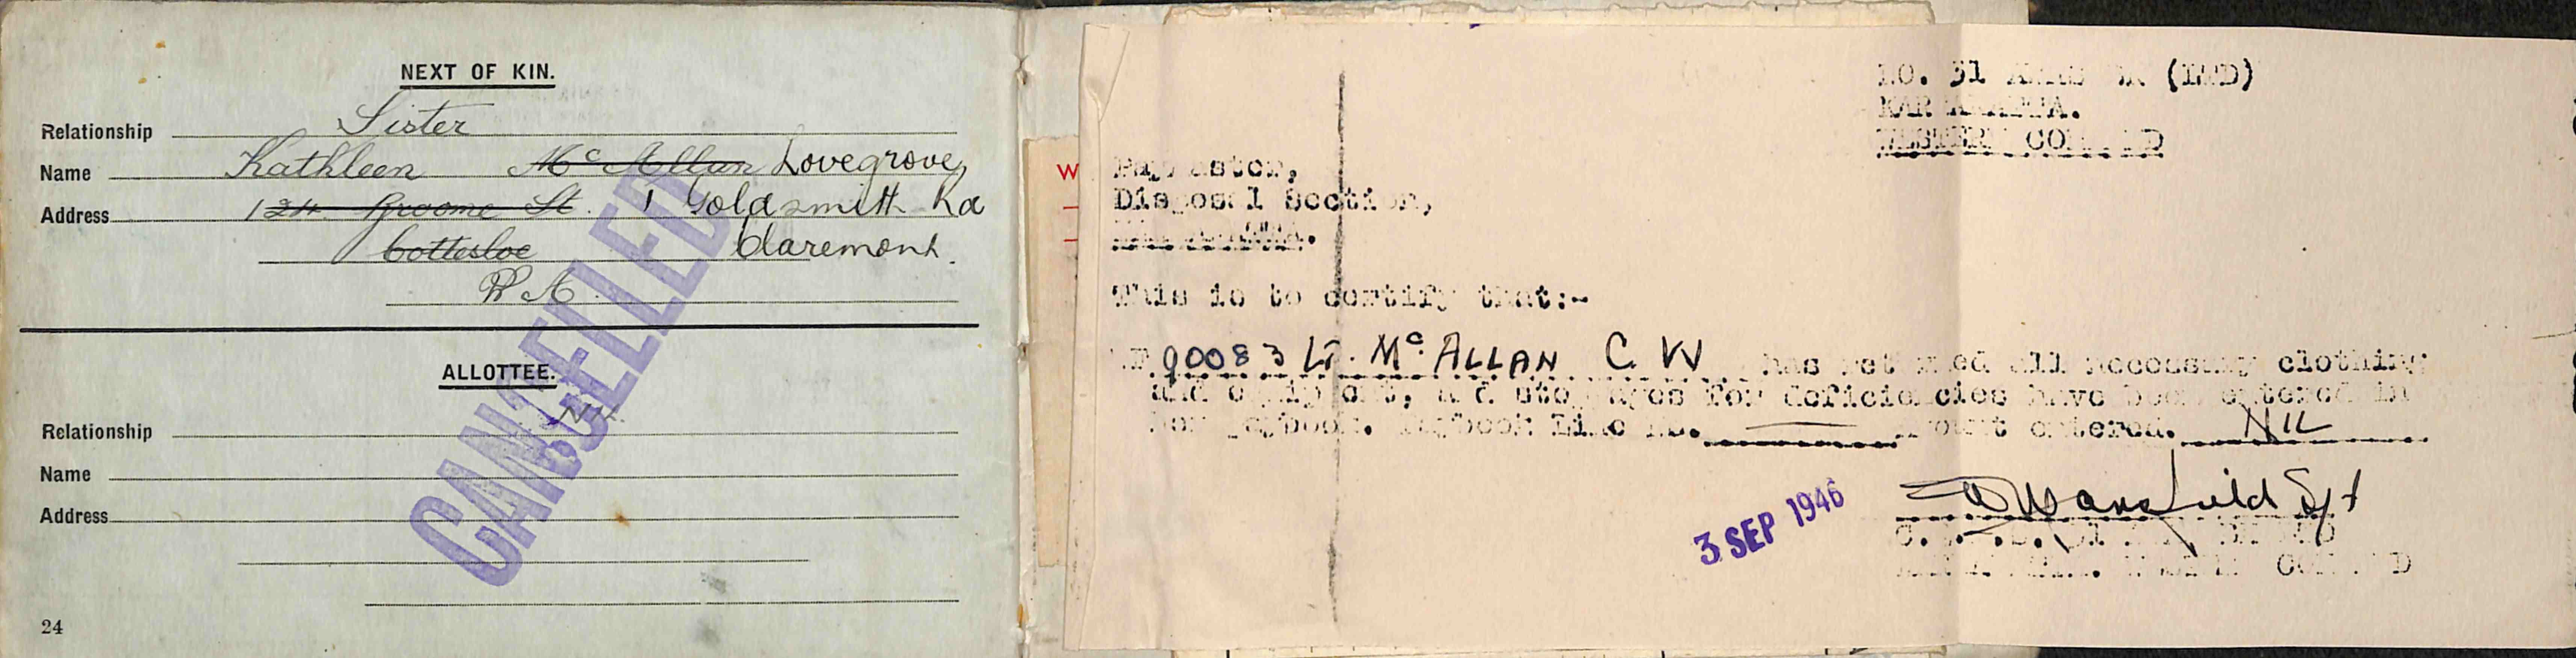 NEXT OF KIN.
Relationship Sister
Name Kathleen McAllan Lovegrove,
Address 124 Broome St. 1 Goldsmith Rd
Cottesloe Claremont.
W A.
ALLOTTEE.
Relationship Nil
Name
Address
24
CANCELLED
W
31 (IMD)
WESTERN COMMAND
Paymaster,
Disposal Section,
This is to certify that:-
90083 Lt. McALLAN C W has returned all necessary clothing
and equipment, and stoppages for deficiencies have been entered in
paybook. Paybook Line No. amount entered. NIL
3 SEP 1946
Sgt